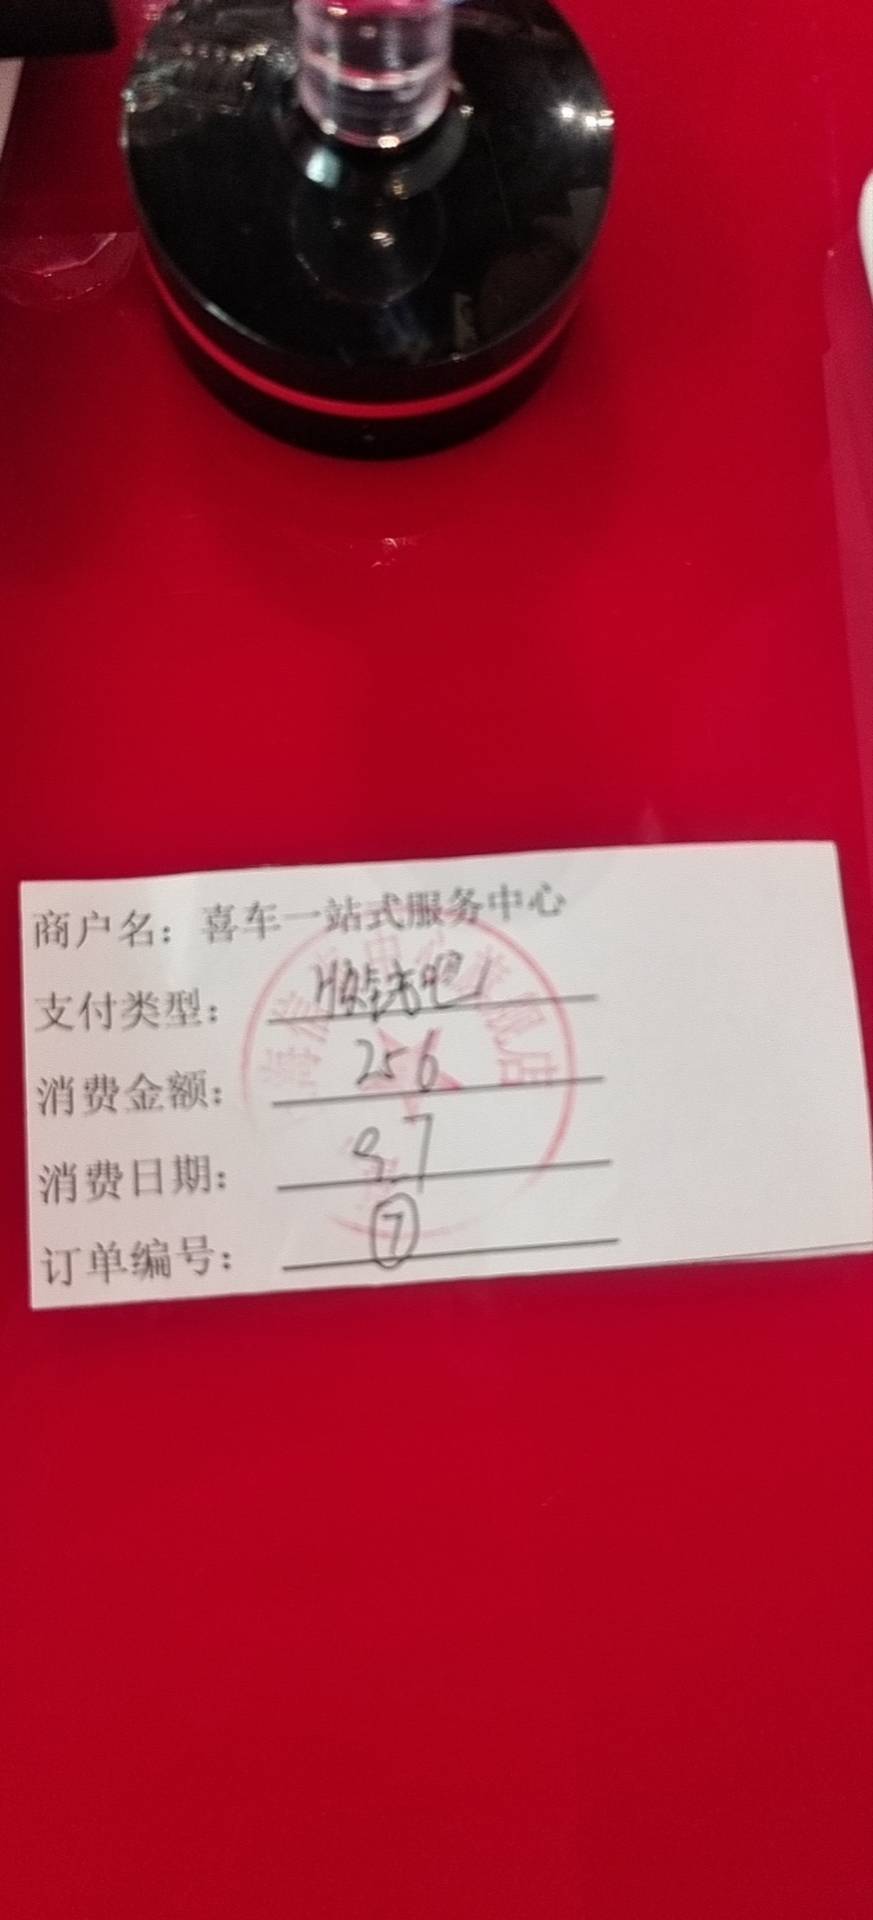 商户名：喜车一站式服务中心
支付类型：收钱吧
消费金额：256
消费日期：9.7
订单编号：⑦